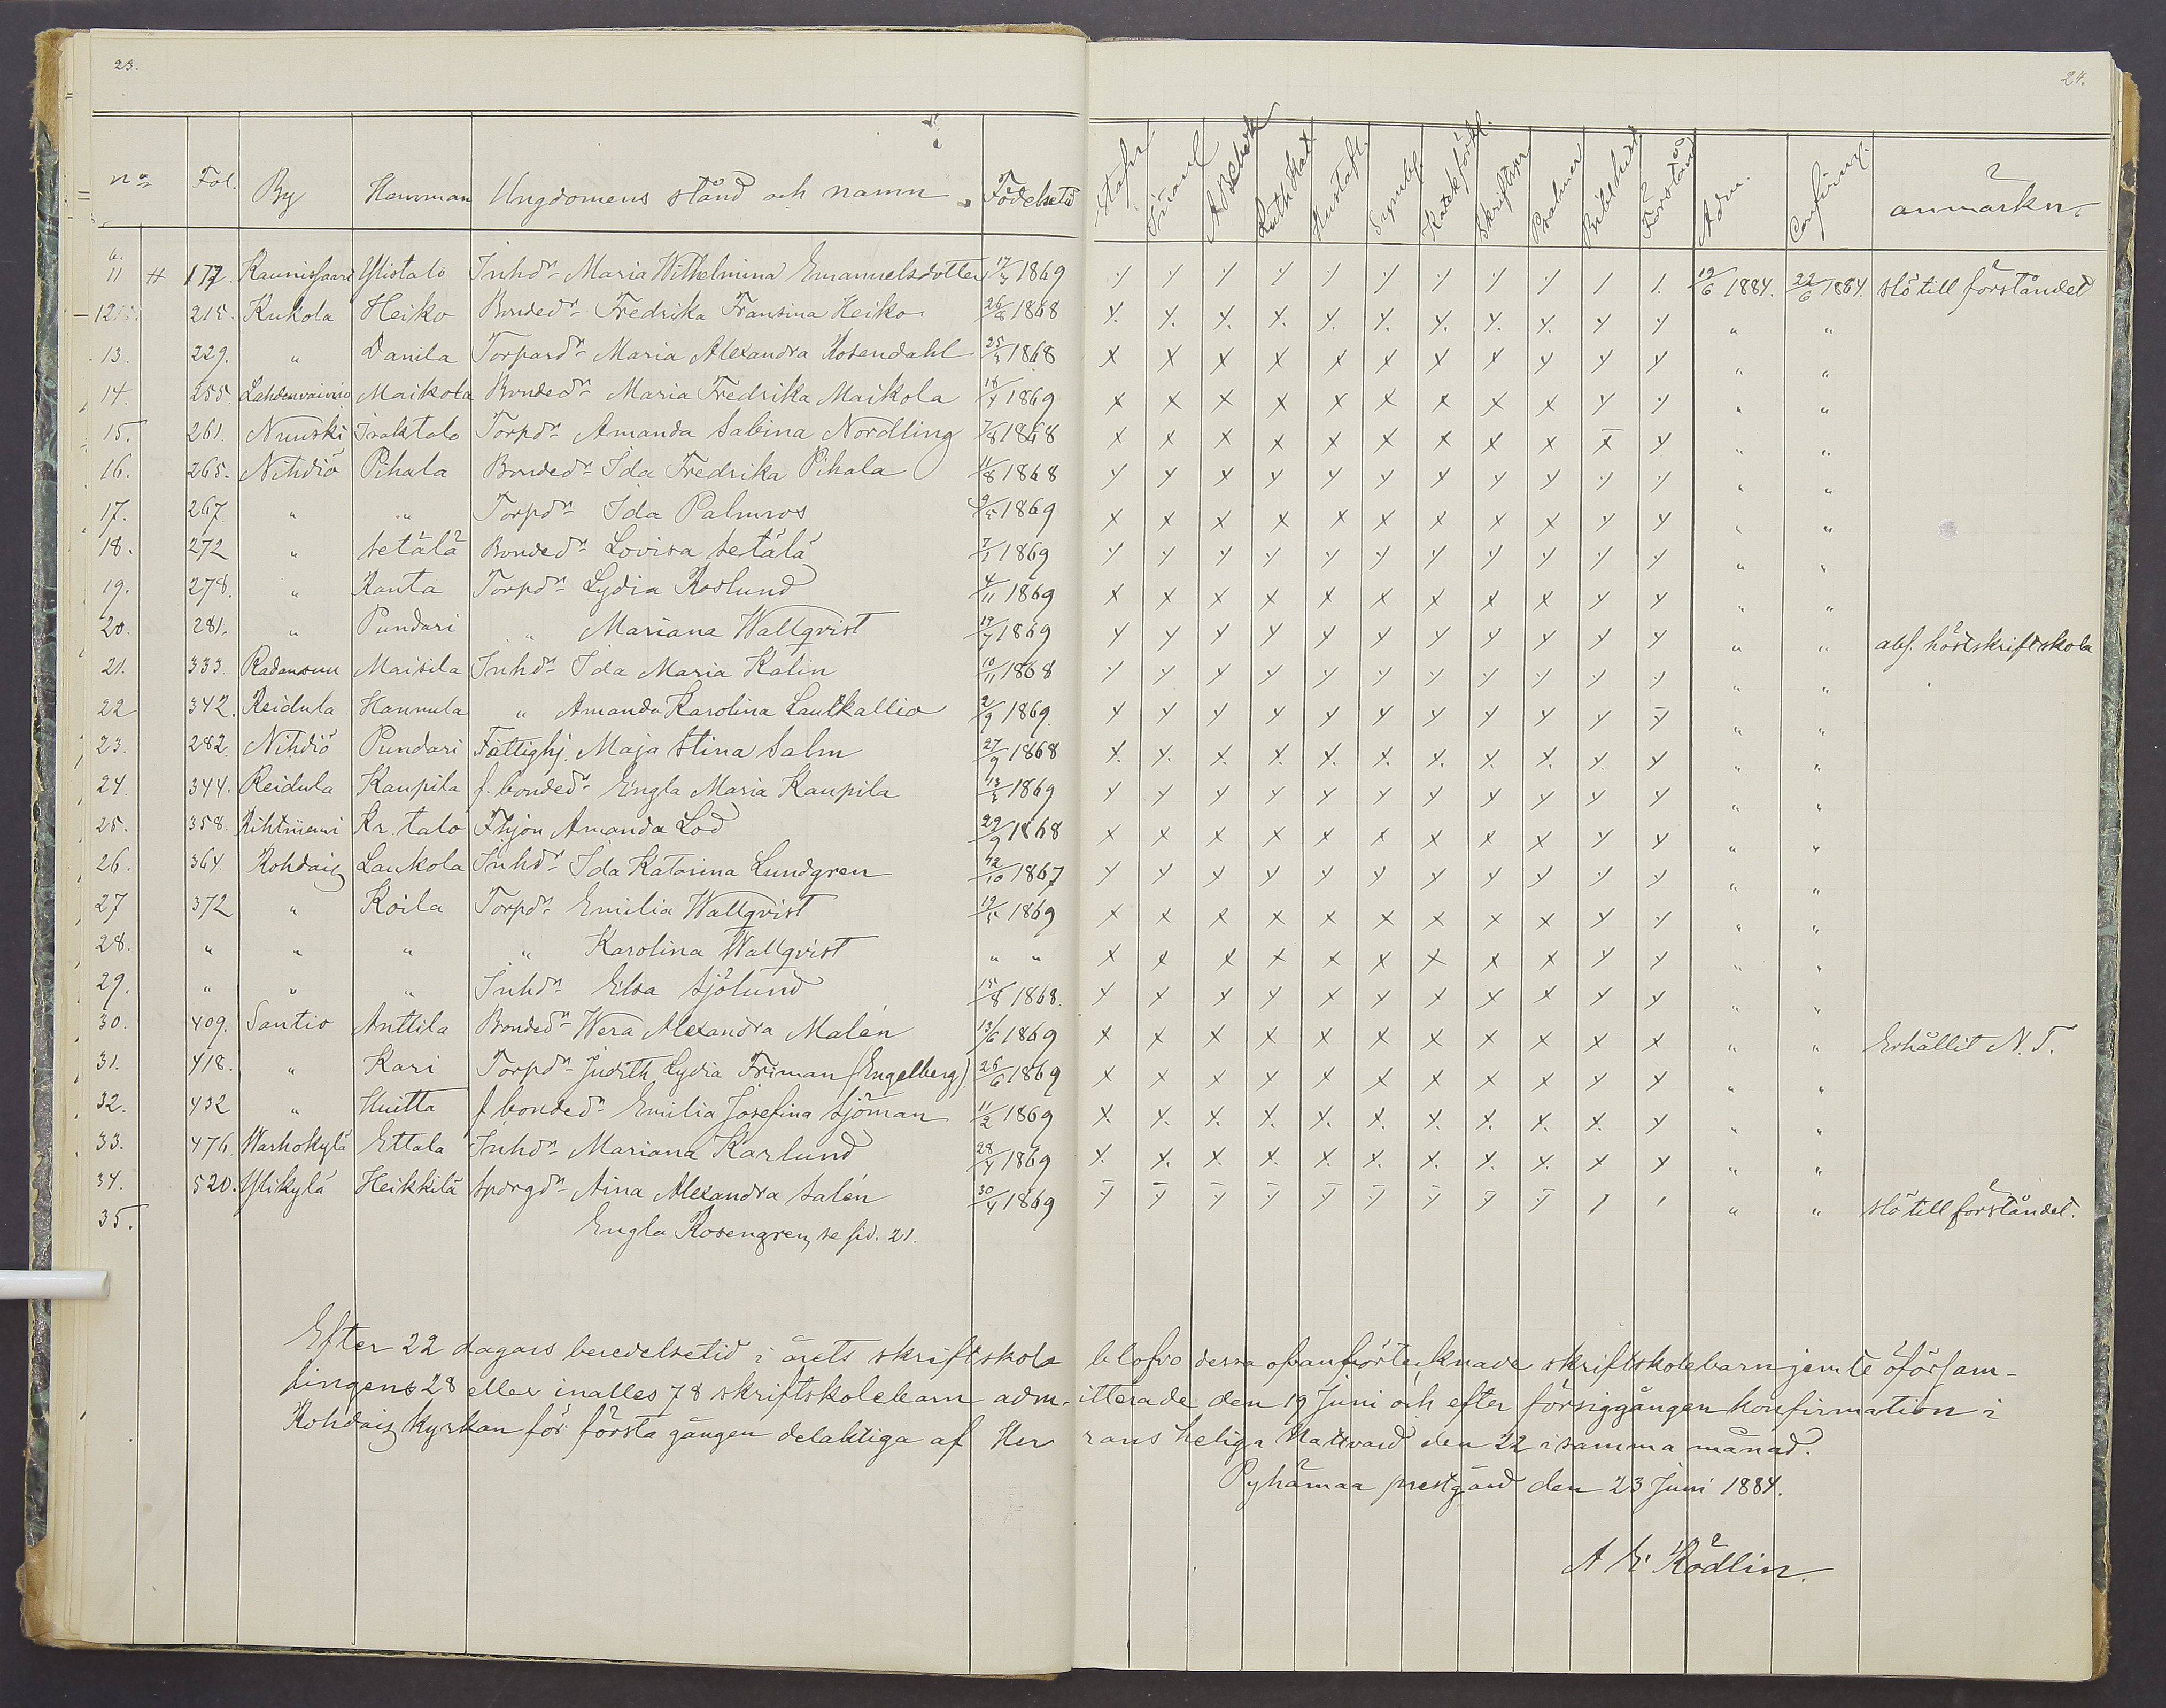 23.
24.
No Fol. By Hemman Ungdomens stånd och namn Födelsetid
Stafn. Innanl. A B C bok Luth. Kat. Hustafl. Symbol. Katek. förkl. Skriftspr. Psalmer Bibl. hist. Förstånd Adm. Confirm. anmärkn.
11 # 172. Kaunissaari Ylistalo Inhdr Maria Wilhelmina Emanuelsdotter 17/3 1869 19/6 1884. 22/6 1884. slö till förståndet
12 215. Kukola Heiko Bondedr Fredrika Fransina Heiko 26/8 1868 " "
13. 229. " Danila Torpardr Maria Alexandra Rosendahl 25/3 1868 " "
14. 255. Lahdenvainio Maikola Bondedr Maria Fredrika Maikola 18/4 1869 " "
15. 261. Nuuski Isaktalo Torpdr Amanda Sabina Nordling 7/8 1868 " "
16. 265. Nihdiö Pihala Bondedr Ida Fredrika Pihala 11/8 1868 " "
17. 267 " " Torpdr Ida Palmros 9/5 1869 " "
18. 272 " Setälä Bondedr Lovisa Setälä 7/1 1869 " "
19. 278. " Ranta Torpdr Lydia Roslund 4/11 1869 " "
20. 281. " Pundari " Mariana Wallqvist 19/7 1869 " " abs. höstskriftskola
21. 333. Radansuu Maisila Inhdr Ida Maria Kalin 10/11 1868 " "
22 342. Reidula Hannula " Amanda Karolina Lautkallio 2/9 1869. " "
23. 282 Nihdiö Pundari Fattighj. Maja Stina Salm 27/9 1868 " "
24. 344. Reidula Kaupila f. bondedr Engla Maria Kaupila 13/2 1869 " "
25. 358. Rihtniemi Kr. talo Fhjon Amanda Lod 29/9 1868 " "
26. 364. Rohdaig Laukola Inhdr Ida Katarina Lundgren 12/10 1867 " "
27 372 " Koila Torpdr Emilia Wallqvist 19/5 1869 " "
28. " " " " Karolina Wallqvist " " " "
29. " " " Inhdr Elsa Sjölund 15/8 1868. " "
30. 409. Santio Anttila Bondedr Wera Alexandra Malén 13/6 1869 " " Erhållit N. T.
31. 418. " Kari Torpdr Judith Lydia Friman (Engelberg) 26/6 1869 " "
32. 432 " Huitta f bondedr Emilia Josefina Sjöman 11/2 1869 " "
33. 476. Warhokylä Ettala Inhdr Mariana Karlund 28/4 1869 " "
34. 520. Ylikylä Heikkilä Spdrgdr Aina Alexandra Salén 30/4 1869 " " slö till förståndet.
35. Engla Rosengren, se sid. 21.
Efter 22 dagars beredelsetid i årets skriftskola blefvo dessa ofvanförtecknade skriftskolebarn jemte öförsam-
lingens 28 eller inalles 78 skriftskolebarn adm-itterade den 19 Juni och efter försiggången konfirmation i
Rohdaig kyrkan för första gången delaktiga af Herrans heliga Nattvard den 22 i samma månad.
Pyhämaa prestgård den 23 Juni 1884.
A E Rödlin.